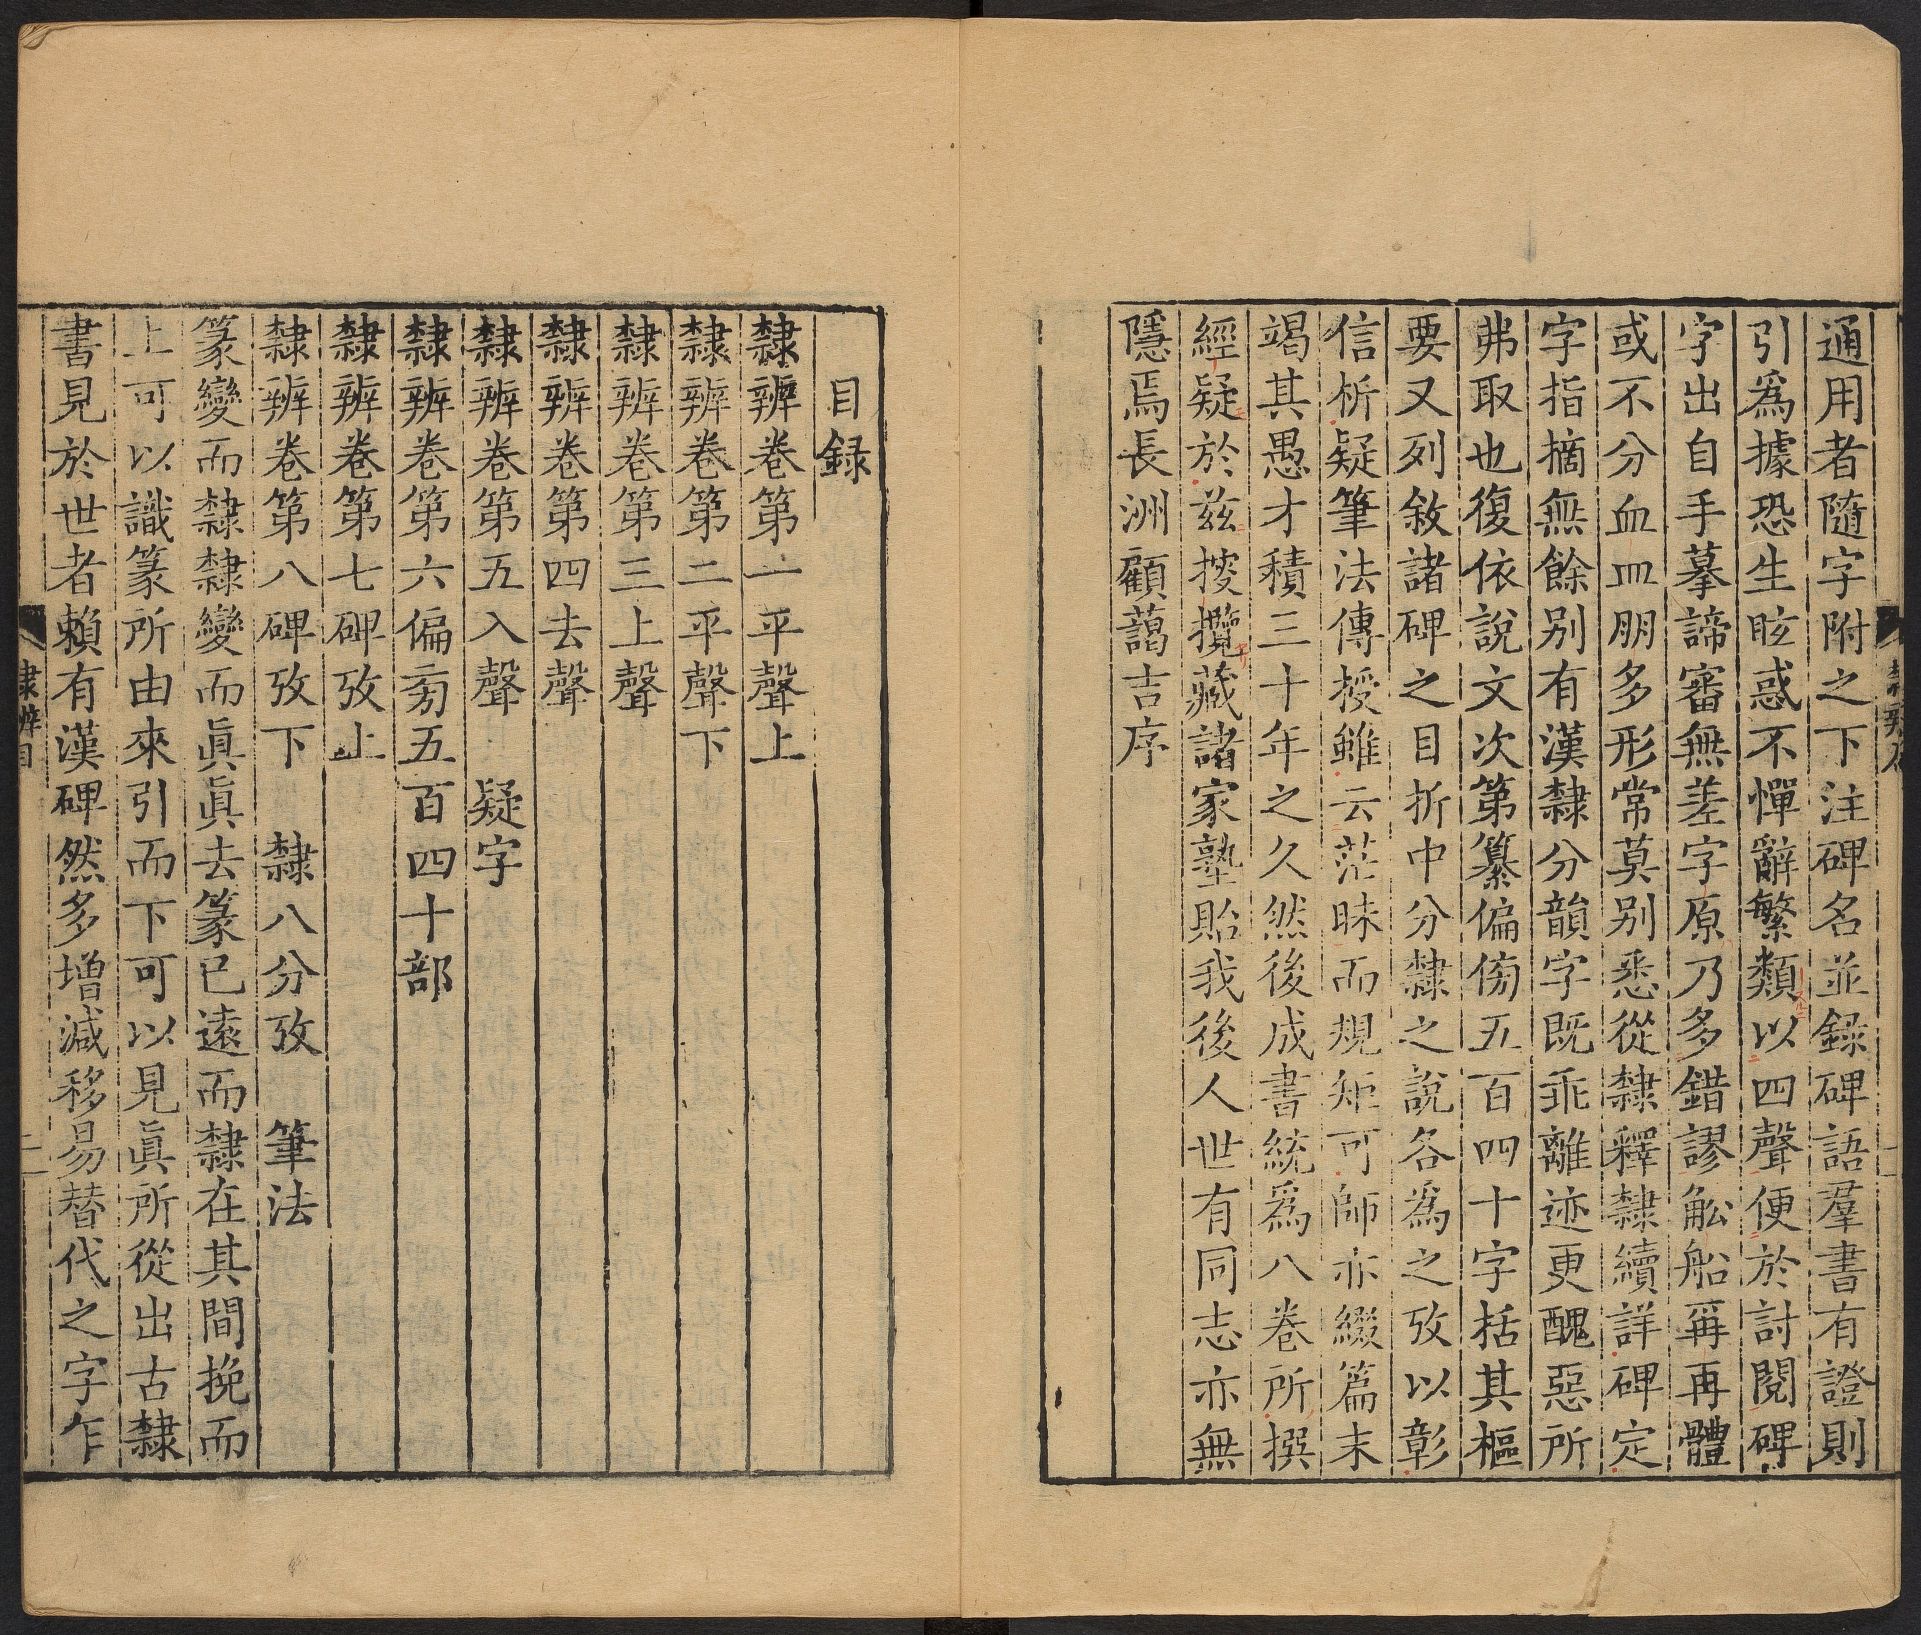 通用者隨字附之下注碑名並錄碑語羣書有證則
引爲據恐生眩惑不憚辭繁類以四聲便於討閱碑
字出自手摹諦審無差字原乃多錯謬舩船再再體
或不分血皿朋多形常莫别悉從隸釋隸續詳碑定
字指摘無餘别有漢隸分韻字既乖離迹更醜惡所
弗取也復依說文次第纂偏傍五百四十字括其樞
要又列敘諸碑之目折中分隸之說各爲之攷以彰
信析疑筆法傳授雖云茫昧而規矩可師亦綴篇末
竭其愚才積三十年之久然後成書統爲八卷所撰
經疑於兹挍攬藏諸家塾貽我後人世有同志亦無
隱焉長洲顧藹吉序
目錄
隸辨卷第一平聲上
隸辨卷第二平聲下
隸辨卷第三上聲
隸辨卷第四去聲
隸辨卷第五入聲 疑字
隸辨卷第六偏㫄五百四十部
隸辨卷第七碑攷上
隸辨卷第八碑攷下 隸八分攷 筆法
篆變而隸隸變而眞眞去篆已遠而隸在其間挽而
上可以識篆所由來引而下可以見眞所從出古隸
書見於世者賴有漢碑然多增減移易替代之字乍
隸辨目
二